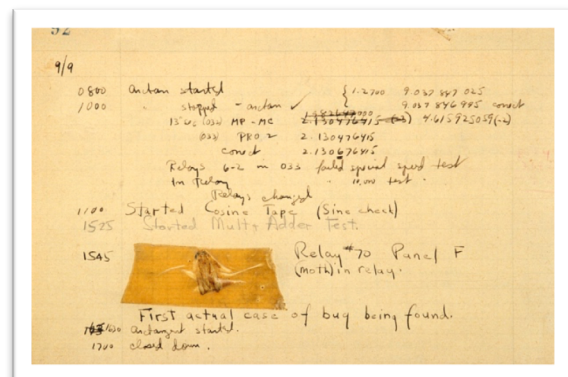 92
9/9
0800 Antan started { 1.2700 9.037 847 025
1000 " stopped - antan ✓ 9.037 846 995 conect
13" MP - MC 2.130476415 4.615925059(-2)
(033) PRO. 2 2.130476415
conect 2.130676415
Relays 6-2 in 033 failed special speed test
In Relay " 10,000 test .
Relays changed
1100 Started Cosine Tape (Sine check)
1525 Started Mult + Adder Test.
1545 Relay #70 Panel F
(moth) in relay.
First actual case of bug being found.
1630 antangent started.
1700 closed down.